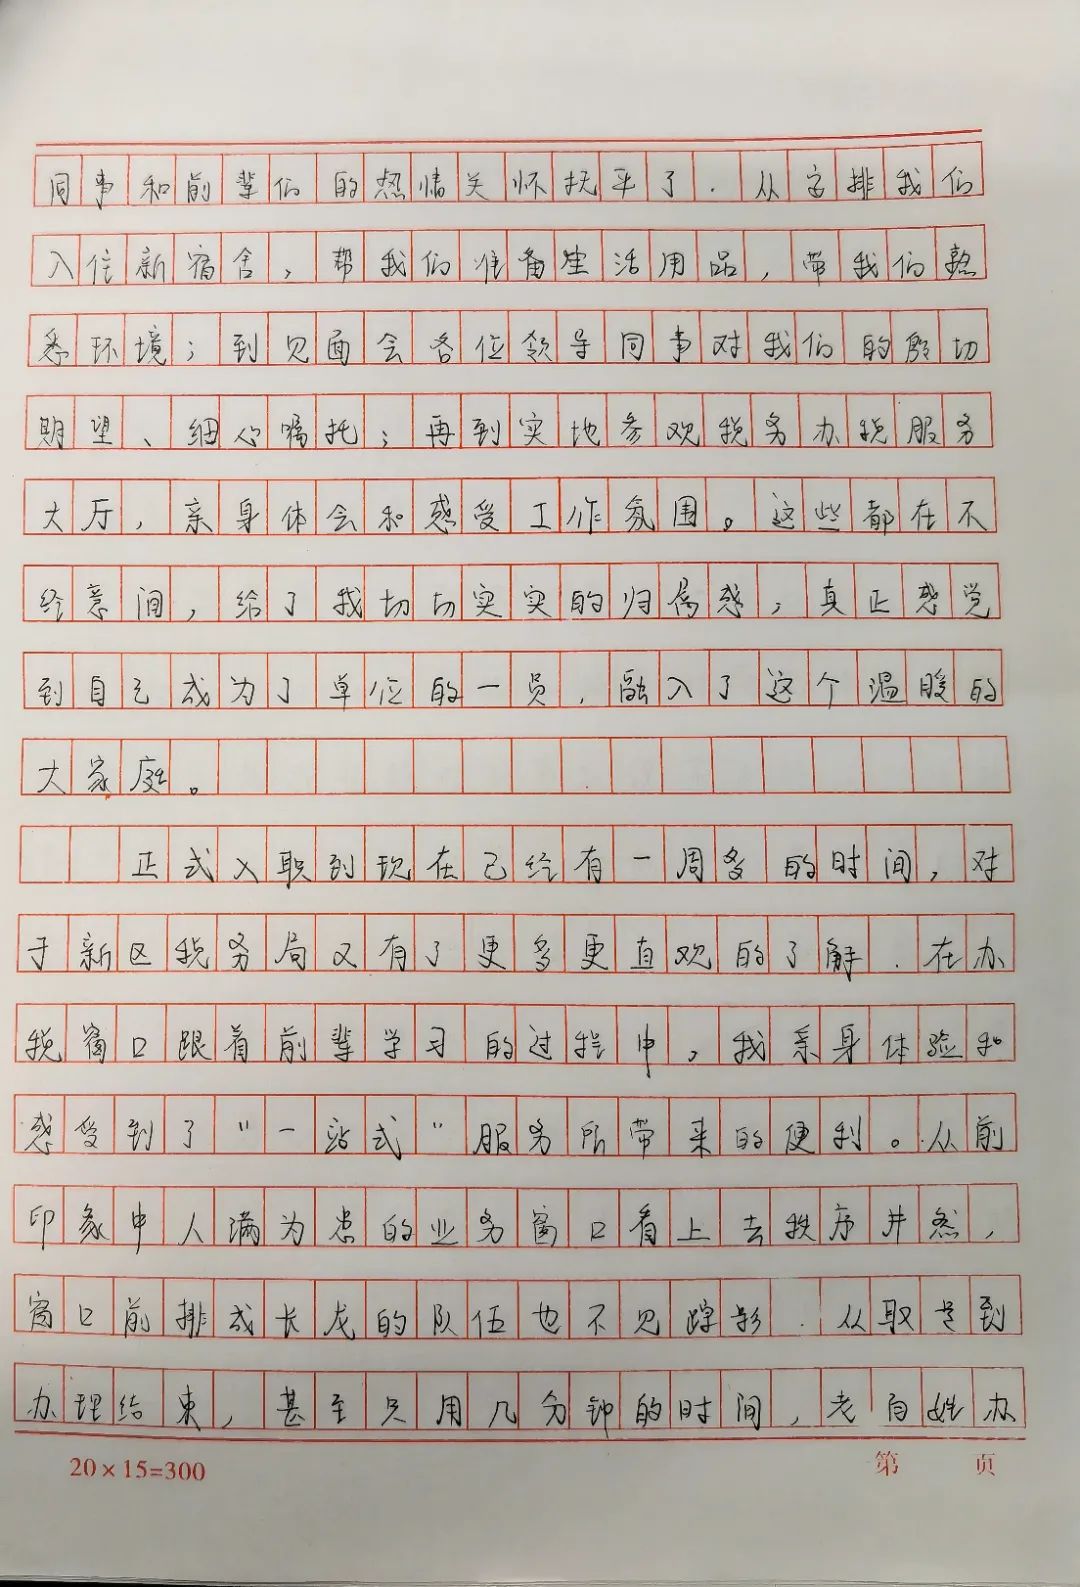 同事和前辈们的热情关怀抚平了.从安排我们
入住新宿舍,帮我们准备生活用品,带我们熟
悉环境;到见面会各位领导同事对我们的殷切
期望、细心嘱托;再到实地参观税务办税服务
大厅,亲身体会和感受工作氛围。这些都在不
经意间,给了我切切实实的归属感,真正感觉
到自己成为了单位的一员,融入了这个温暖的
大家庭。
正式入职到现在已经有一周多的时间,对
于新区税务局又有了更多更直观的了解.在办
税窗口跟着前辈学习的过程中,我亲身体验和
感受到了"一站式"服务所带来的便利。从前
印象中人满为患的业务窗口看上去秩序井然,
窗口前排成长龙的队伍也不见踪影.从取号到
办理结束,甚至只用几分钟的时间,老百姓办
20×15=300
第 页